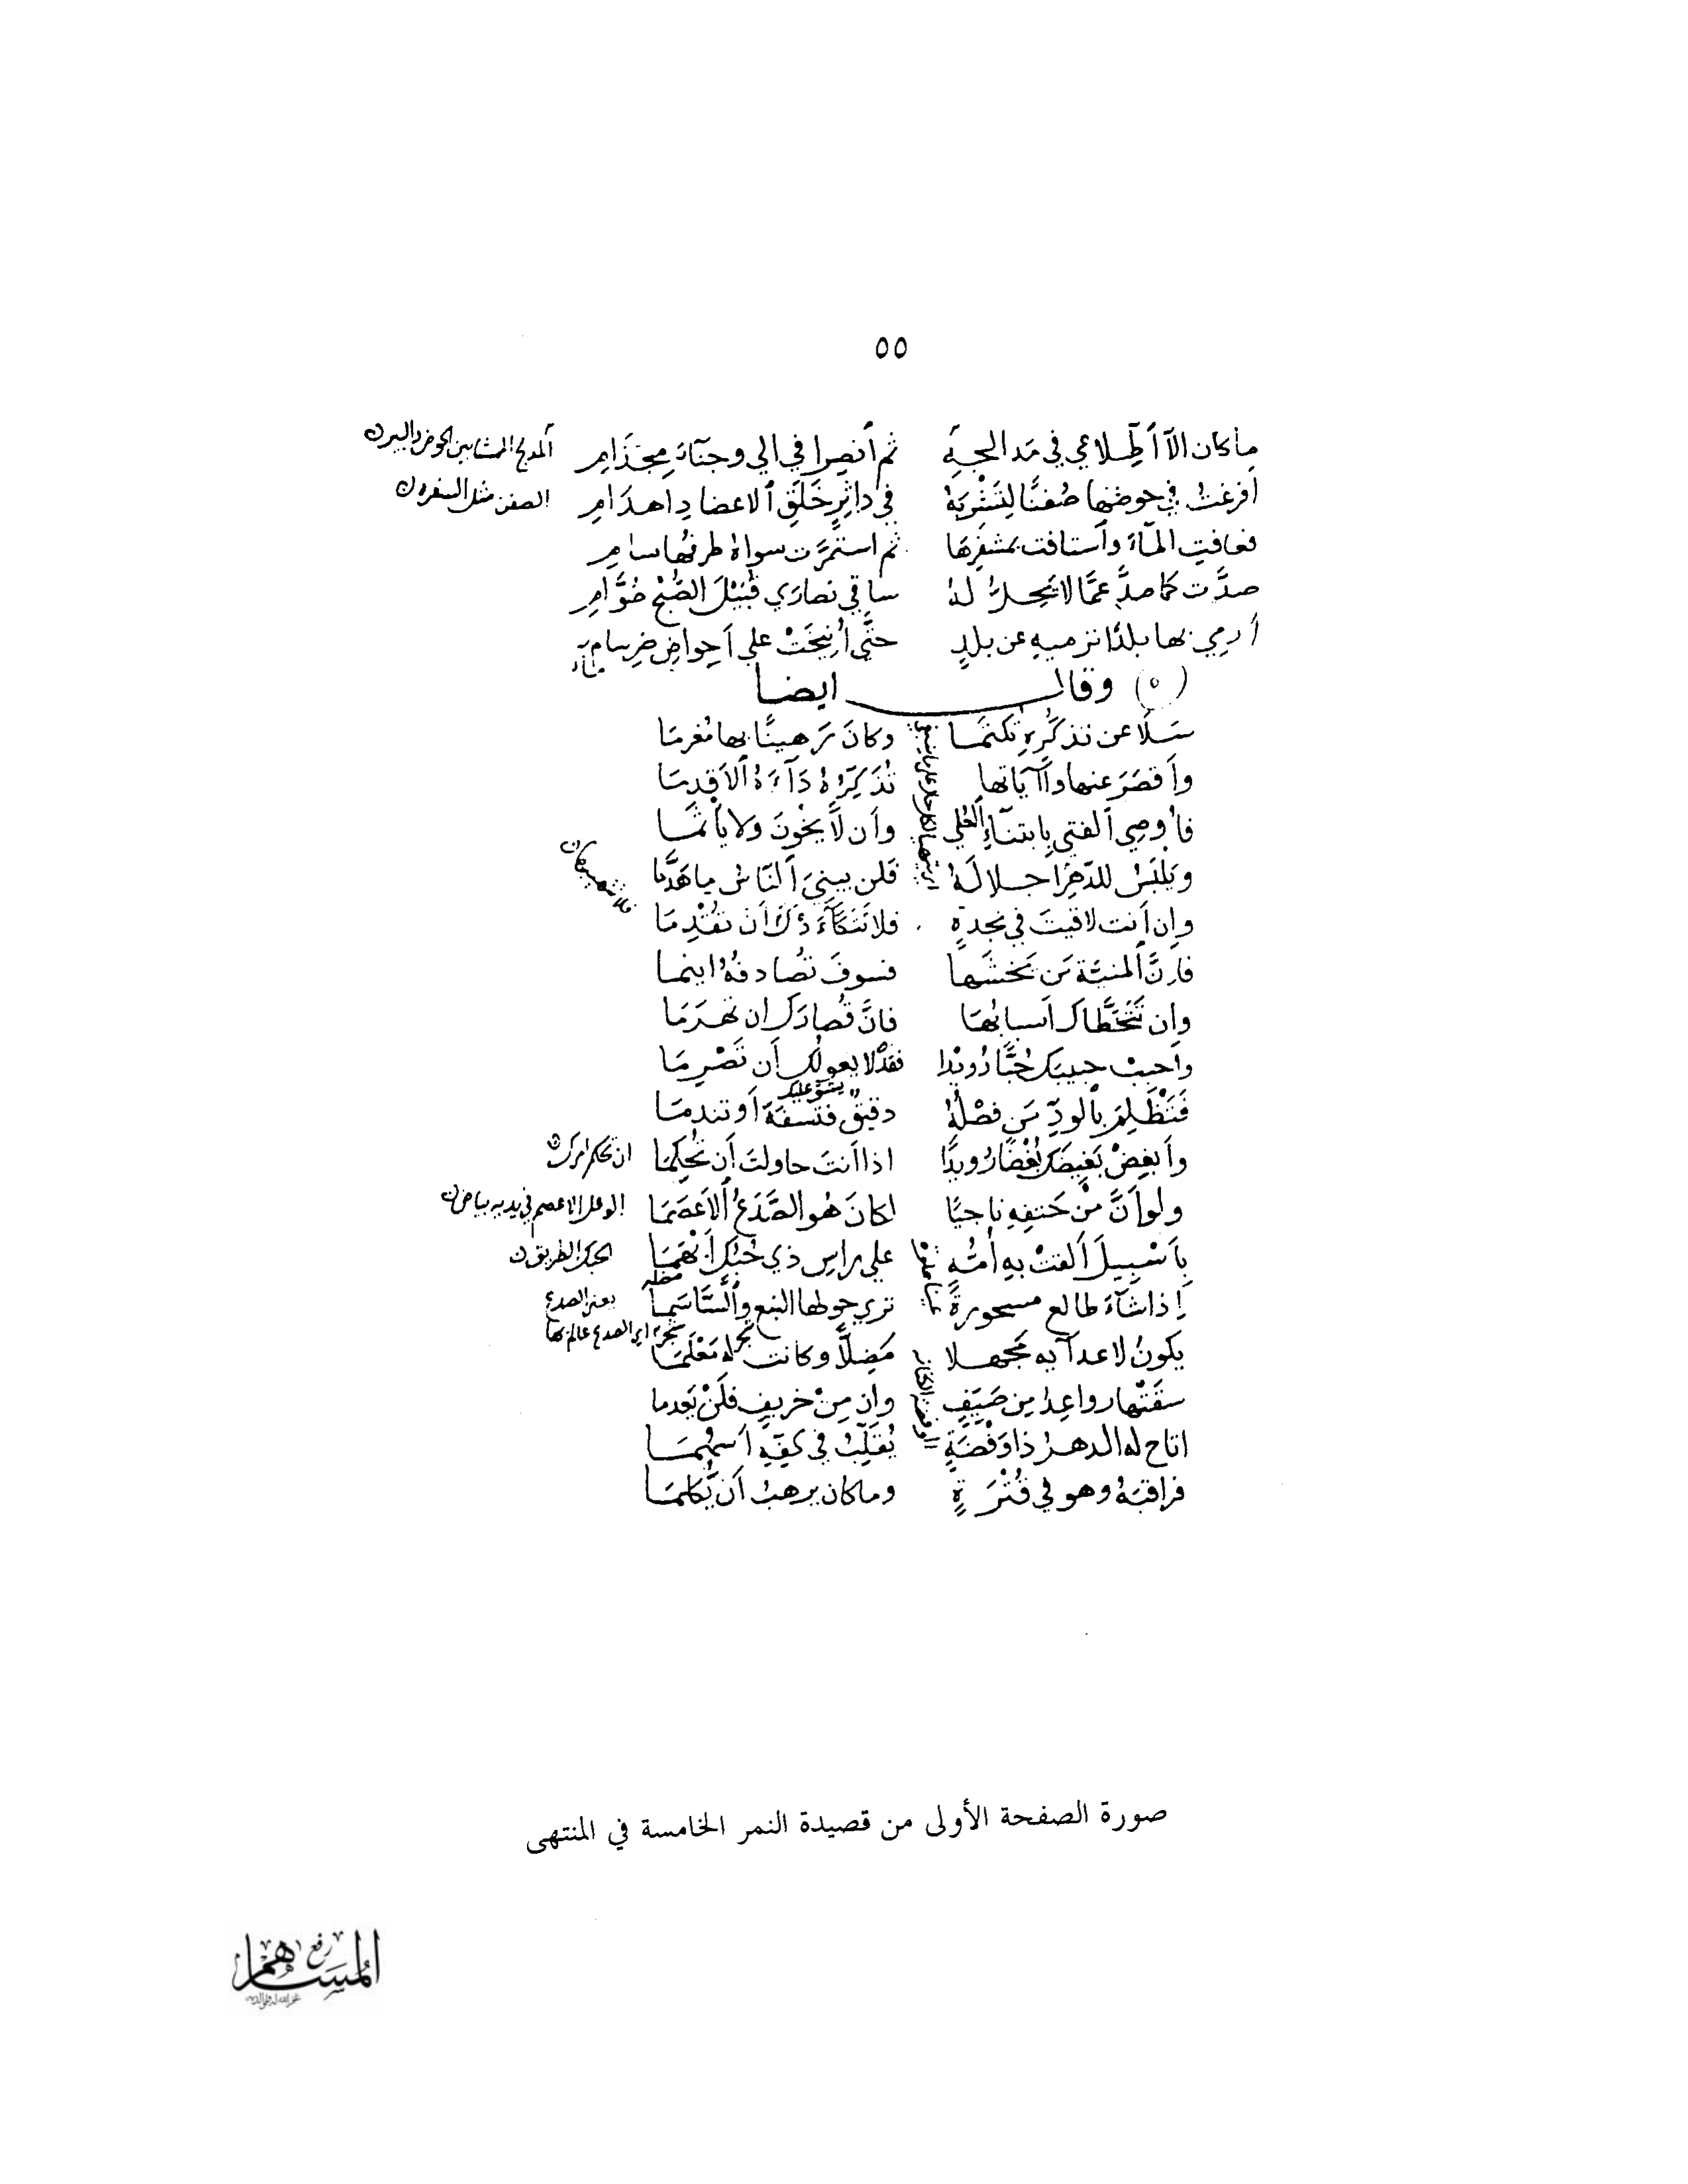 ٥٥
ما كان الا أطِّلاعي في مَدالجهِ ثم أنصرافي الي وجنَآءَ مِجذَامِ
افرغتُ في حوضها صُفنًا لِتَشْربَهُ في داثِرٍ خَلَقِ ألاعضادِ اهدَامِ
فعافتِ المآءَ وأستافت بمشفرِهَا ثم استمرَّت سواهُ طرفُها سامِ
صدَّت كما صدَّ عمَّا لا يَحِلُّ لهُ ساقي نصارَي قُبَيْلَ الصُّبْحِ صُوَّامِ
أرمي بها بلدًا ترميهِ عن بلدٍ حتَّي أُنيخَتْ علي أحواضِ ضِرسامِ
المدلج الممشا بين الحوض والبير
الصفن مثل السفره
(٥) وقال ايضا
سَلَا عن تذكُّرِهِ تُكتَمَا وكانَ رَهينًا بها مُغرمَا
وأقصَرَ عنها وآياتها تُذَكِّرُهُ دَآءَهُ ألاقدمَا
فأوصِي ألفتي بابتنَآءِ ألعُلي وأن لَّا يخُونَ ولا يأثمَا
ويَلبَسُ للدَّهرِ اجلالَهُ فلن يبنيَ ألنَّاسُ ما هَدَّمَا
وإن أنت لاقيتَ في نجدةٍ فلا تتكأَّدَكَ أن تُقْدِمَا
فإنَّ ألمنيَّة مَن يَخشَها فسوفَ تُصادفُهُ اينما
وإن تَتَخَطَّاكَ أسبابُهَا فانَّ قُصارَكَ ان تهرَمَا
وأحبِبْ حبيبَكَ حُبًّا رُويْدا فقدْ لا يعولُكَ أن تَصْرِمَا
فتَظْلِمَ بألودِّ مَن فَصْلُهُ دقيقٌ فتسفَهَ أو تندمَا
يشق عليك
وأبغِضْ بَغيضَكَ بُغْضًا رُويدًا اذا أنتَ حاولتَ أن تُحكِمَا
ان تحكم امرك
ولو أنَّ مِنْ حَتفِهِ ناجيًا لكانَ هُو الصَّدَعُ ألاعصَمَا
الوعل الاعصم في يديه بياض
بإسْبيلَ ألفتْ بهِ أُمُّهُ علي راسِ ذي حُبُكٍ أيْهَمَا
الحبك الطريق
إذا شآءَ طالعَ مسجورةً تري حولها النبع وألسَّاسَمَا
يعني الصدع
يكونُ لاعدآيه مَجهلا مَضِلًّا وكانت له مَعْلَمَا
اي الصدع عالم بها
سقَتْها رواعِدُ مِن صَيِّفٍ وإن مِنْ خريفٍ فلَنْ يَعدما
اتاح له الدهرُ ذا وَفْضَةٍ يُقلِّبُ في كفِّهِ اَسهُمَا
فراقبَهُ وهو في قُتْرَةٍ وما كان يرهبُ أن يُّكلمَا
صورة الصفحة الأولى من قصيدة النمر الخامسة في المنتهى
رفع
المساهم